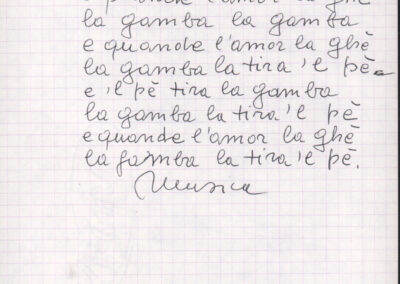 e quande l'amor la ghè
la gamba la gamba
e quande l'amor la ghè
la gamba la tira 'l pè
e 'l pè tira la gamba
la gamba la tira 'l pè
e quande l'amor la ghè
la gamba la tira 'l pè.
Musica